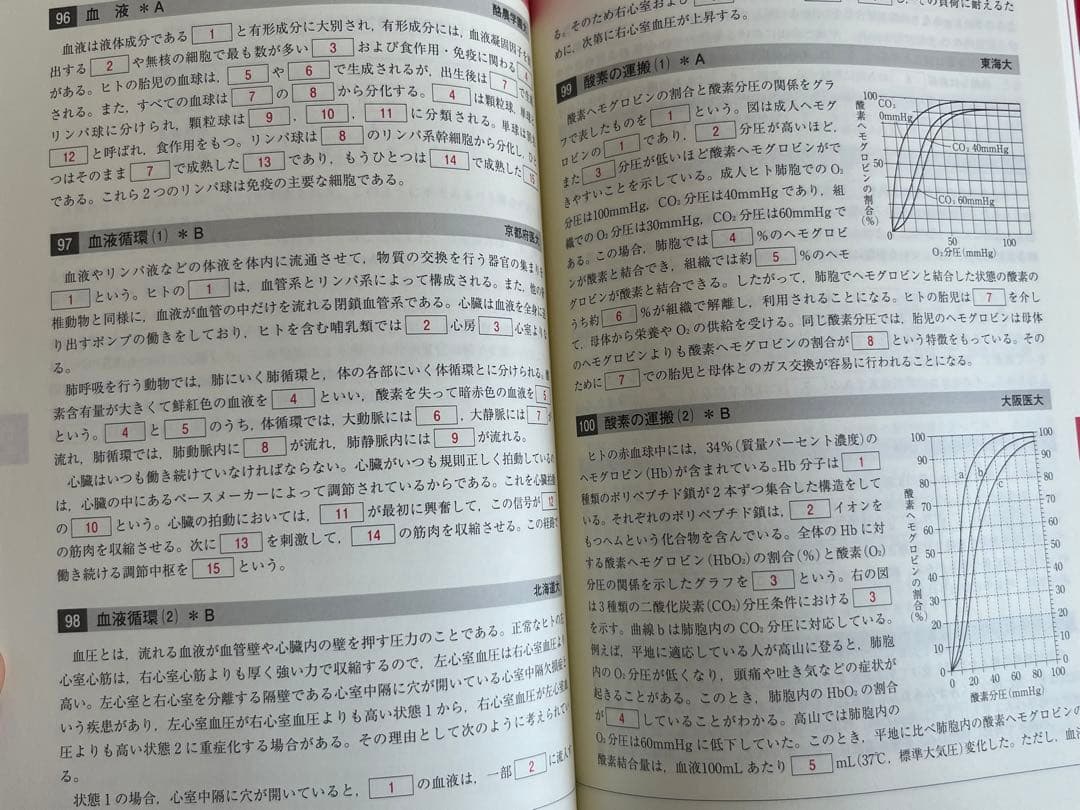 96 血 液 ＊A 酪農学園大
血液は液体成分である 1 と有形成分に大別され，有形成分には，血液凝固因子を放
出する 2 や無核の細胞で最も数が多い 3 および食作用・免疫に関わる 4
がある。ヒトの胎児の血球は， 5 や 6 で生成されるが，出生後は 7 で生成
される。また，すべての血球は 7 の 8 から分化する。 4 は顆粒球，単球と
リンパ球に分けられ，顆粒球は 9 ， 10 ， 11 に分類される。単球は
12 と呼ばれ，食作用をもつ。リンパ球は 8 のリンパ系幹細胞から分化し，ひと
つはそのまま 7 で成熟した 13 であり，もうひとつは 14 で成熟した 15
である。これら2つのリンパ球は免疫の主要な細胞である。
97 血液循環(1) ＊B 京都府医大
血液やリンパ液などの体液を体内に流通させて，物質の交換を行う器官の集まりを
1 という。ヒトの 1 は，血管系とリンパ系によって構成される。また，他の脊
椎動物と同様に，血液が血管の中だけを流れる閉鎖血管系である。心臓は血液を全身に送
り出すポンプの働きをしており，ヒトを含む哺乳類では 2 心房 3 心室よりな
る。
肺呼吸を行う動物では，肺にいく肺循環と，体の各部にいく体循環とに分けられる。酸
素含有量が大きくて鮮紅色の血液を 4 といい，酸素を失って暗赤色の血液を 5
という。 4 と 5 のうち，体循環では，大動脈には 6 ，大静脈には 7 が
流れ，肺循環では，肺動脈内に 8 が流れ，肺静脈内には 9 が流れる。
心臓はいつも働き続けていなければならない。心臓がいつも規則正しく拍動しているの
は，心臓の中にあるペースメーカーによって調節されているからである。これを心臓拍動
の 10 という。心臓の拍動においては， 11 が最初に興奮して，この信号が 12
の筋肉を収縮させる。次に 13 を刺激して， 14 の筋肉を収縮させる。この経路で
働き続ける調節中枢を 15 という。
98 血液循環(2) ＊B 北海道大
血圧とは，流れる血液が血管壁や心臓内の壁を押す圧力のことである。正常なヒトの左
心室心筋は，右心室心筋よりも厚く強い力で収縮するので，左心室血圧は右心室血圧より
高い。左心室と右心室を分離する隔壁である心室中隔に穴が開いている心室中隔欠損症と
いう疾患があり，左心室血圧が右心室血圧よりも高い状態1から，右心室血圧が左心室血
圧よりも高い状態2に重症化する場合がある。その理由として次のように考えられてい
る。
状態1の場合，心室中隔に穴が開いていると， 1 の血液は，一部 2 に流入す
る。そのため右心室および の負荷に耐えるた
めに，次第に右心室血圧が上昇する。
99 酸素の運搬(1) ＊A 東海大
酸素ヘモグロビンの割合と酸素分圧の関係をグラ
フで表したものを 1 という。図は成人ヘモグ
ロビンの 1 であり， 2 分圧が高いほど，
また 3 分圧が低いほど酸素ヘモグロビンがで
きやすいことを示している。成人ヒト肺胞でのO₂
分圧は100mmHg，CO₂分圧は40mmHgであり，組
織でのO₂分圧は30mmHg，CO₂分圧は60mmHgで
ある。この場合，肺胞では 4 %のヘモグロビ
ンが酸素と結合でき，組織では約 5 %のヘモ
グロビンが酸素と結合できる。したがって，肺胞でヘモグロビンと結合した状態の酸素の
うち約 6 %が組織で解離し，利用されることになる。ヒトの胎児は 7 を介し
て，母体から栄養やO₂の供給を受ける。同じ酸素分圧では，胎児のヘモグロビンは母体
のヘモグロビンよりも酸素ヘモグロビンの割合が 8 という特徴をもっている。その
ために 7 での胎児と母体とのガス交換が容易に行われることになる。
酸素ヘモグロビンの割合(%)
100
50
0
CO₂
0mmHg
CO₂ 40mmHg
CO₂ 60mmHg
50 100
O₂分圧(mmHg)
100 酸素の運搬(2) ＊B 大阪医大
ヒトの赤血球中には，34%(質量パーセント濃度)の
ヘモグロビン(Hb)が含まれている。Hb分子は 1
種類のポリペプチド鎖が2本ずつ集合した構造をして
いる。それぞれのポリペプチド鎖は， 2 イオンを
もつヘムという化合物を含んでいる。全体のHbに対
する酸素ヘモグロビン(HbO₂)の割合(%)と酸素(O₂)
分圧の関係を示したグラフを 3 という。右の図
は3種類の二酸化炭素(CO₂)分圧条件における 3
を示す。曲線bは肺胞内のCO₂分圧に対応している。
例えば，平地に適応している人が高山に登ると，肺胞
内のO₂分圧が低くなり，頭痛や吐き気などの症状が
起きることがある。このとき，肺胞内のHbO₂の割合
が 4 していることがわかる。高山では肺胞内の
O₂分圧は60mmHgに低下していた。このとき，平地に比べ肺胞内の酸素ヘモグロビンの
酸素結合量は，血液100mLあたり 5 mL(37℃，標準大気圧)変化した。ただし，血液
酸素ヘモグロビンの割合(%)
100 100
90 90
80 80
70 70
60 60
50 50
40 40
30 30
20 20
10 10
0 0
a b c
0 20 40 60 80 100
酸素分圧(mmHg)